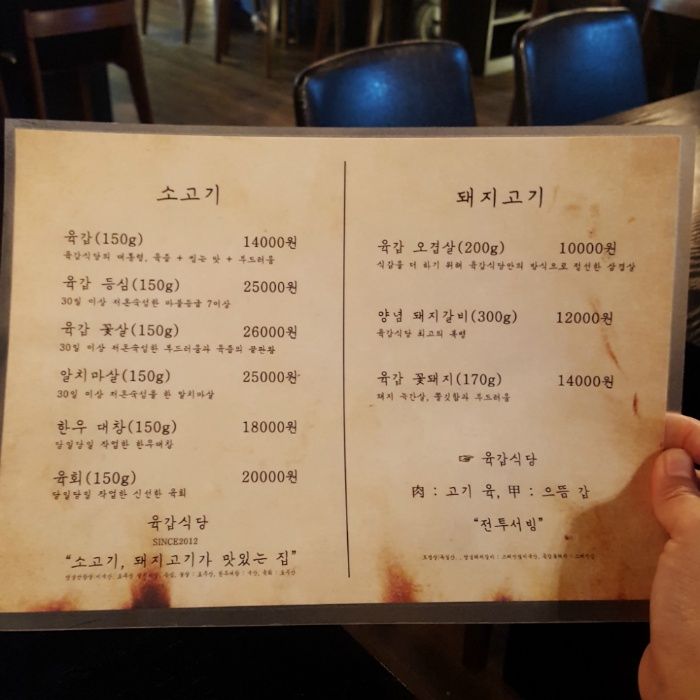 소고기
육갑(150g) 14000원
육갑식당의 대통령, 육즙 + 씹는 맛 + 부드러움
육갑 등심(150g) 25000원
30일 이상 저온숙성한 마블등급 7이상
육갑 꽃살(150g) 26000원
30일 이상 저온숙성한 부드러움과 육즙의 끝판왕
알치마살(150g) 25000원
30일 이상 저온숙성을 한 알치마살
한우 대창(150g) 18000원
당일당일 작업한 한우대창
육회(150g) 20000원
당일당일 작업한 신선한 육회
육갑식당
SINCE2012
"소고기, 돼지고기가 맛있는 집"
돼지고기
육갑 오겹살(200g) 10000원
식감을 더 하기 위해 육갑식당만의 방식으로 정선한 삼겹살
양념 돼지갈비(300g) 12000원
육갑식당 최고의 복병
육갑 꽃돼지(170g) 14000원
돼지 늑간살, 쫄깃함과 부드러움
☞ 육갑식당
肉 : 고기 육, 甲 : 으뜸 갑
"전투서빙"